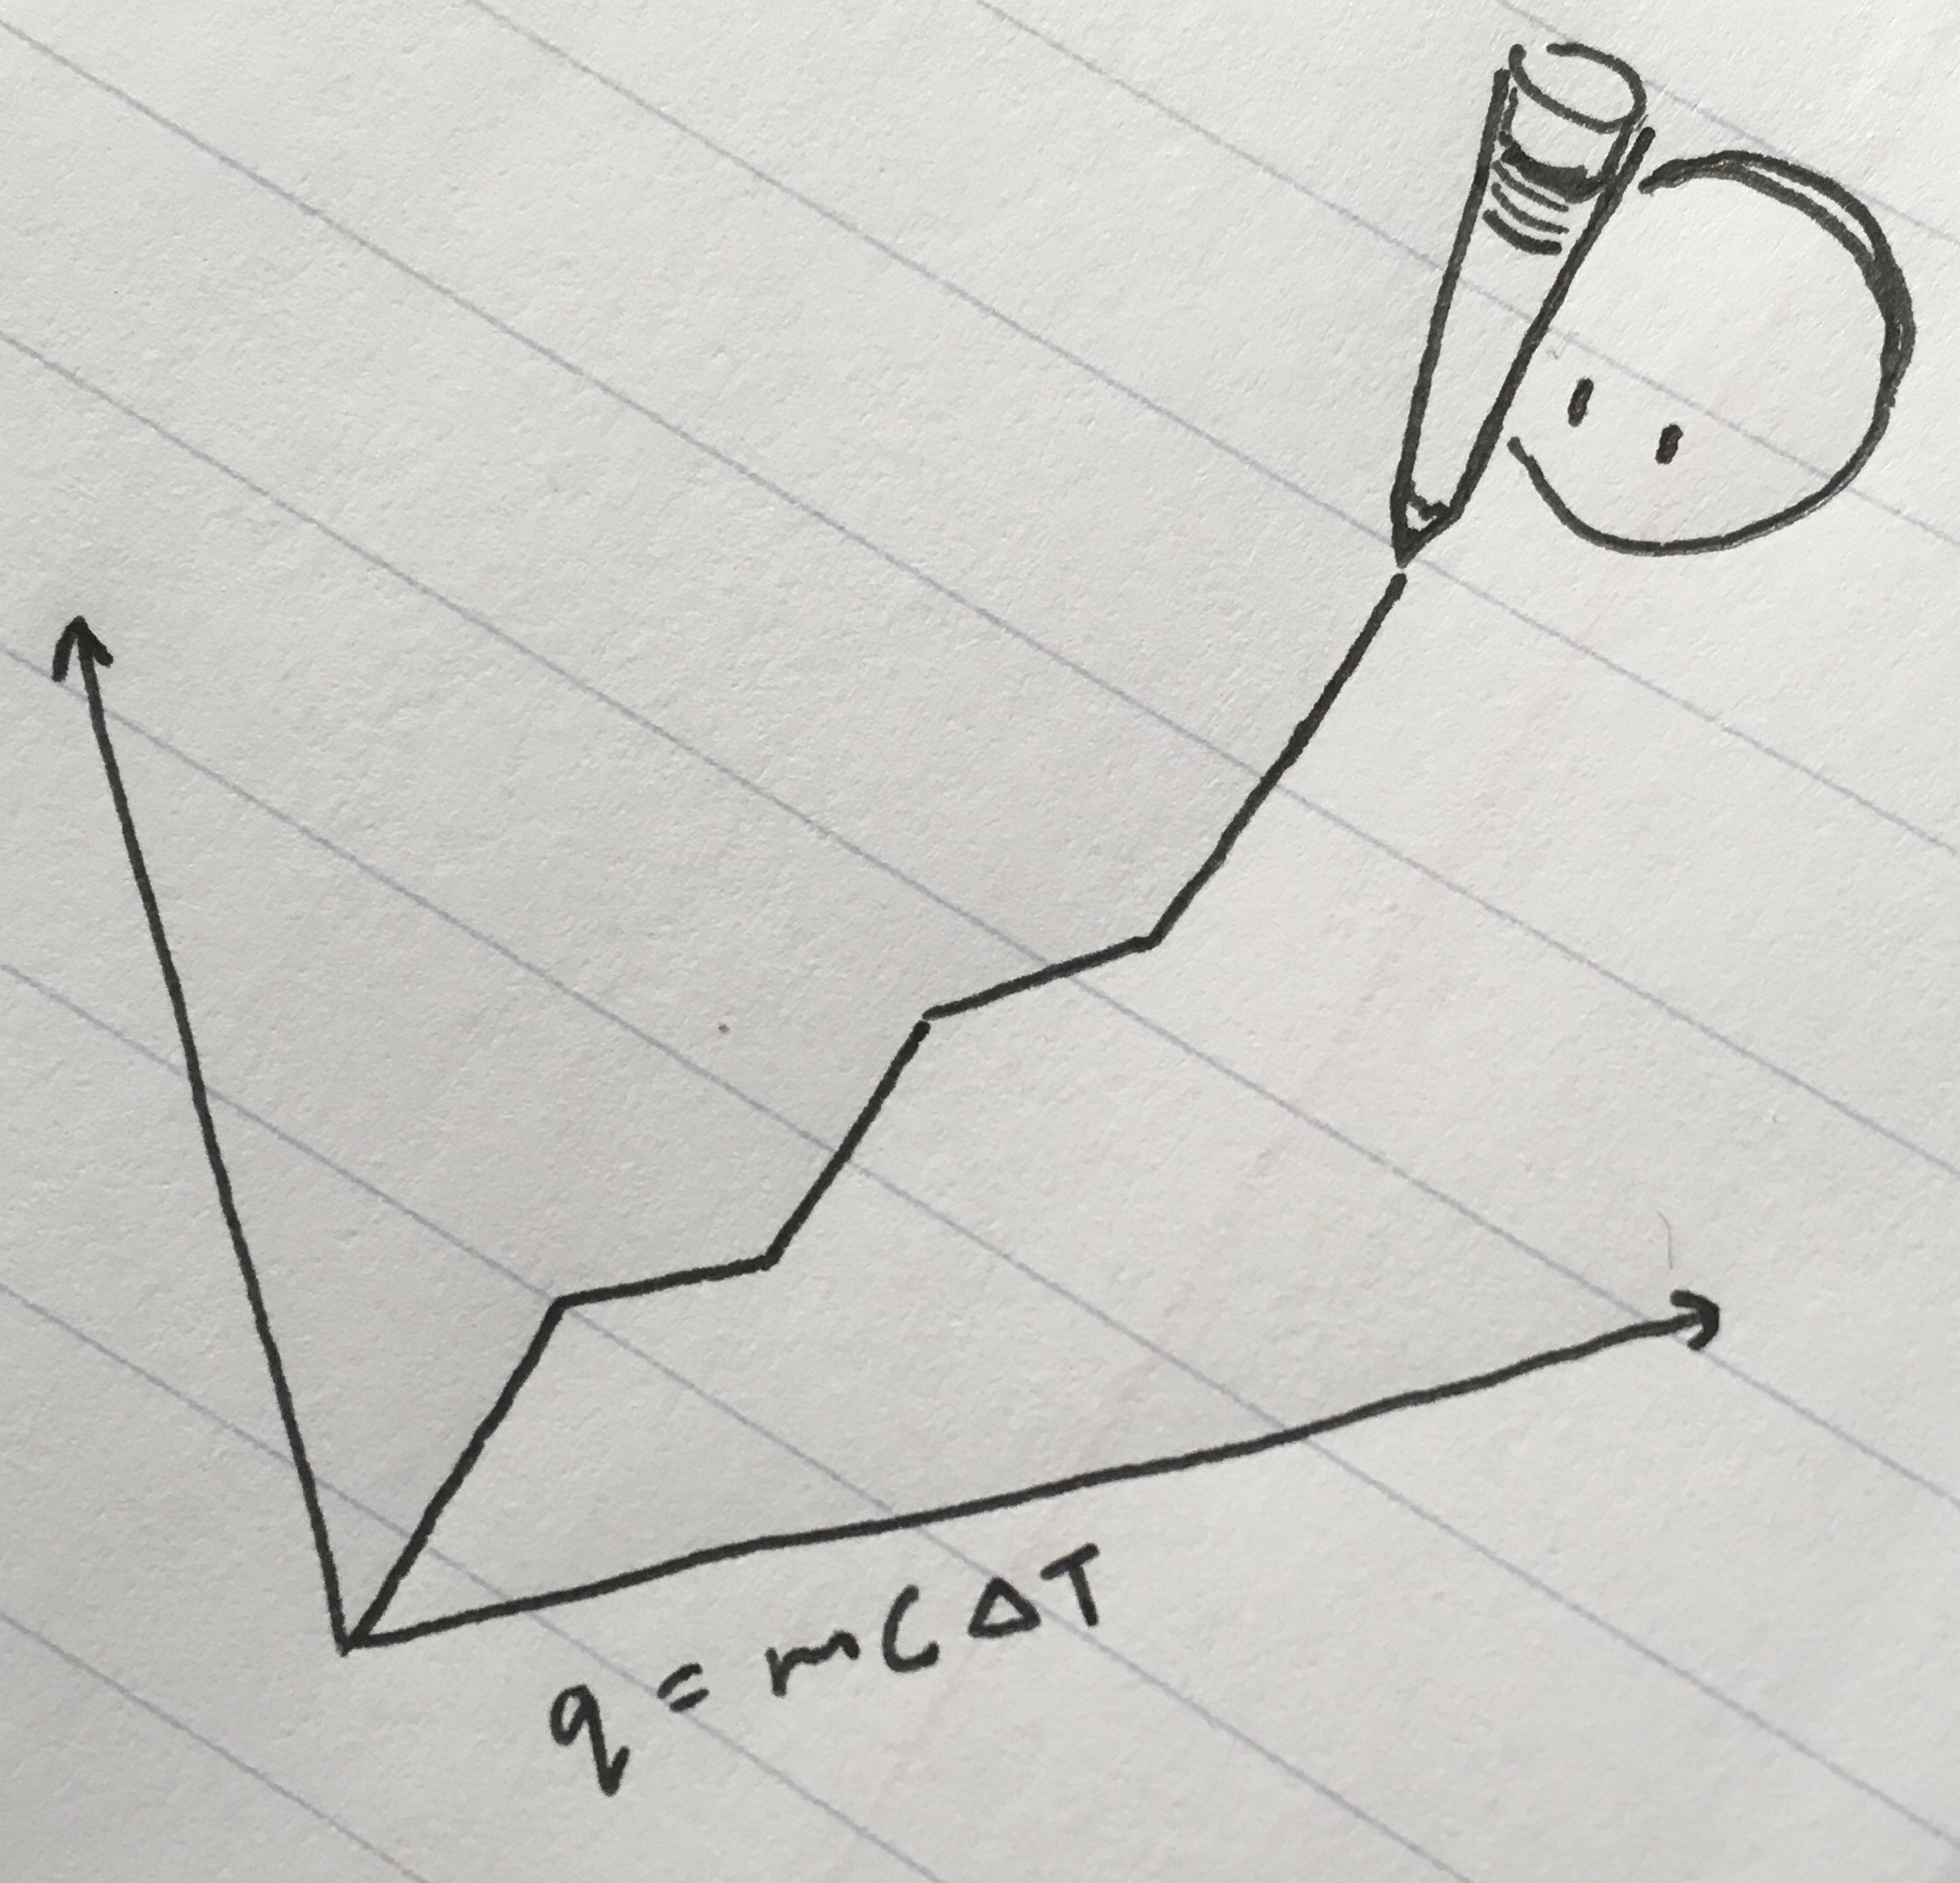 q = mCΔT